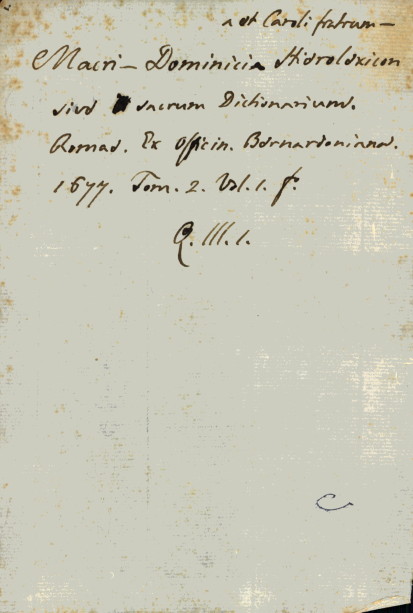 a et Caroli fratrum —
Macri — Dominicia Hieroloxicon
sive sacrum Dictionarium.
Romae. Ex Officin. Bernardoniana.
1677. Tom. 2. Vol. 1. f.
Q. III. 1.
C